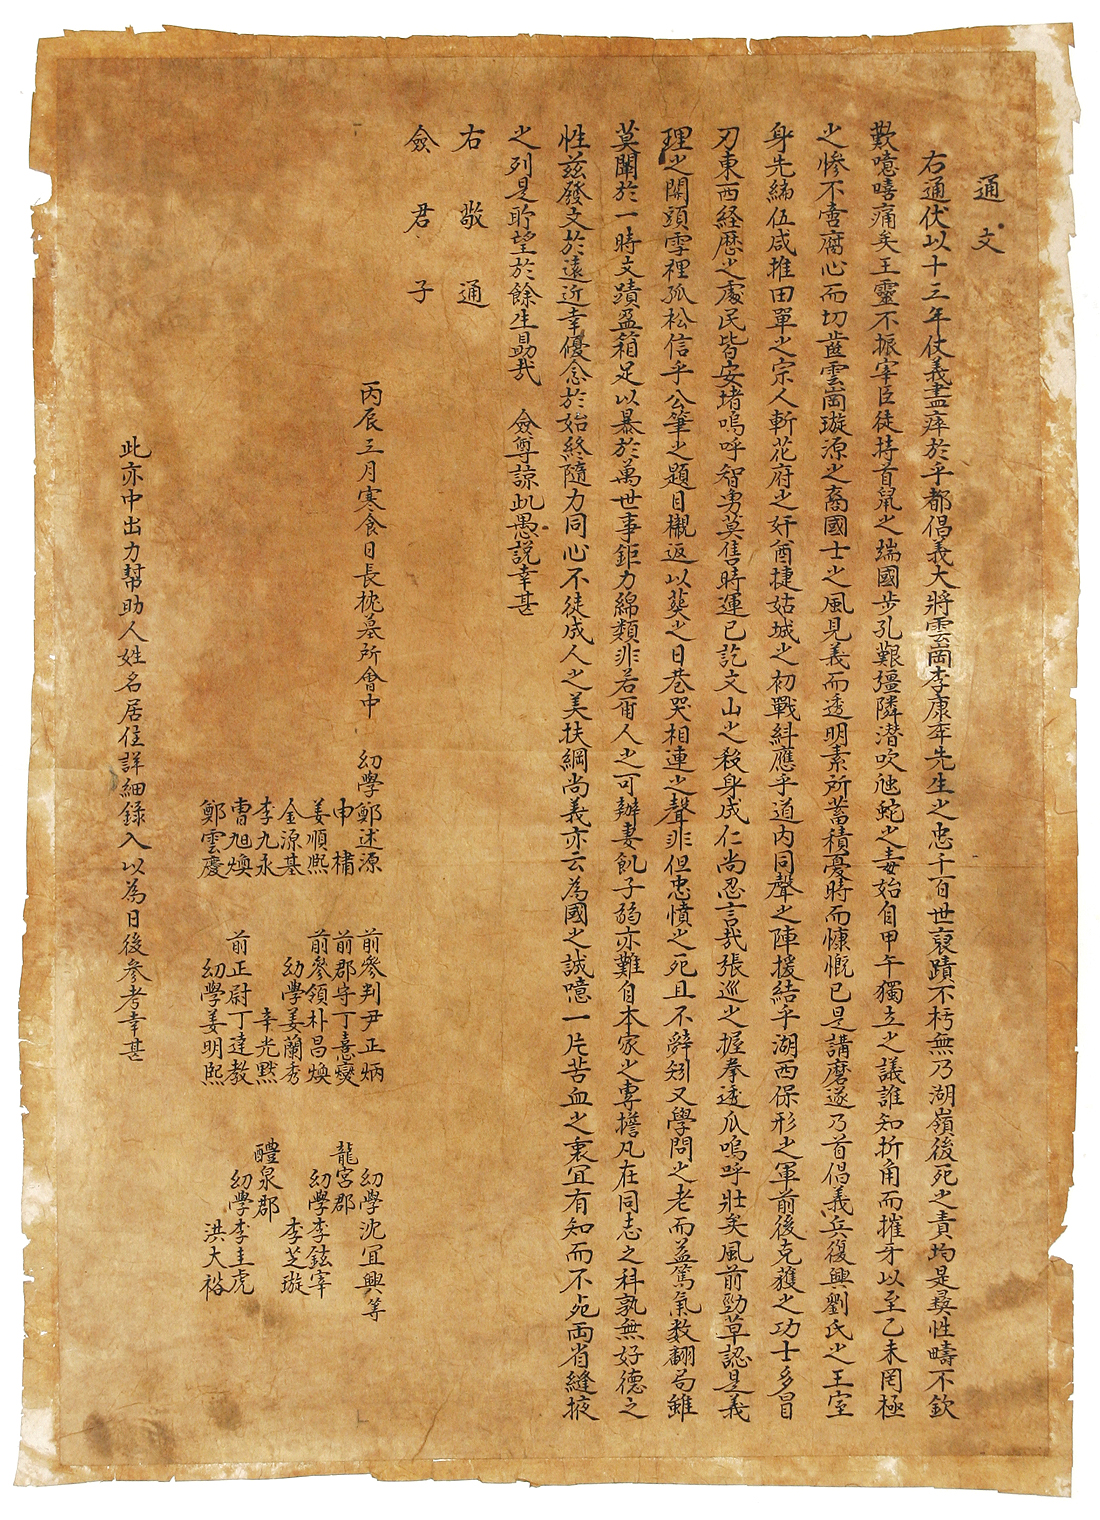 通文
右通伏以十三年仗義盡瘁於乎都倡義大將雲崗李康秊先生之忠千百世衰蹟不朽無乃湖嶺後死之責均是彛性疇不欽
歎噫嘻痛矣王靈不振宰臣徒持首鼠之端國步孔艱彊隣潜吹虺蛇之毒始自甲午獨立之議誰知折角而摧牙以至乙未罔極
之慘不啻腐心而切齒雲崗璇源之裔國士之風見義而透明素所蓄積憂時而慷慨已是講磨遂乃首倡義兵復興劉氏之王室
身先編伍咸推田單之宗人斬花府之奸酋捷姑城之初戰糾應乎道內同聲之陣援結乎湖西保形之軍前後克獲之功士多冒
刃東西経歷之處民皆安堵嗚呼智勇莫售時運已訖文山之殺身成仁尚忍言哉張巡之握拳透瓜嗚呼壯矣風前勁草認是義
理之関頭雪裡孤松信乎公筆之題目櫬返以葬之日巷哭相連之聲非但忠憤之死且不辭矧又學問之老而益篤氣数翻局雖
莫闡於一時文蹟盈箱足以暴於萬世事鉅力綿類非若甭人之可辦妻飢子弱亦難自本家之專擔凡在同志之科孰無好德之
性兹發文於遠近幸優念於始終隨力同心不徒成人之美扶綱尚義亦云為國之誠噫一片苦血之裏冝有知而不死両省縫掖
之列是所望於餘生勗哉 僉尊諒此愚説幸甚
右敬通
僉君子
丙辰三月寒食日長枕墓所會中 幼學鄭述源 前參判尹正炳 幼學沈冝興等
申橚 前郡守丁憙燮 龍宮郡
姜順熙 前參領朴昌煥 幼學李鉉宰
金源基 幼學姜蘭秀 李芝璇
李九永 辛光黙 醴泉郡
曺旭煥 前正尉丁達教 幼學李圭虎
鄭雲慶 幼學姜明熙 洪大裕
此亦中出力幇助人姓名居住詳細錄入以為日後參考幸甚